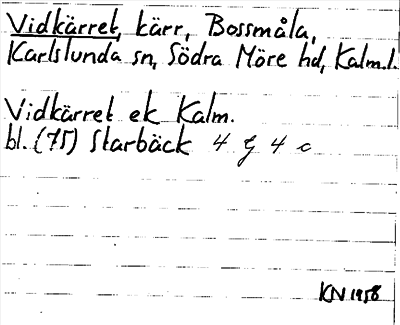 Vidkärret, kärr, Bossmåla,
Karlslunda sn, Södra Möre hd, Kalm.l.
Vidkärret ek Kalm.
bl. (75) Starbäck 4 G 4 c
KN 1958